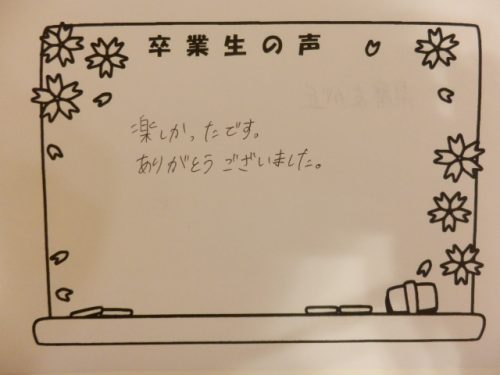 卒業生の声
楽しかったです。
ありがとうございました。